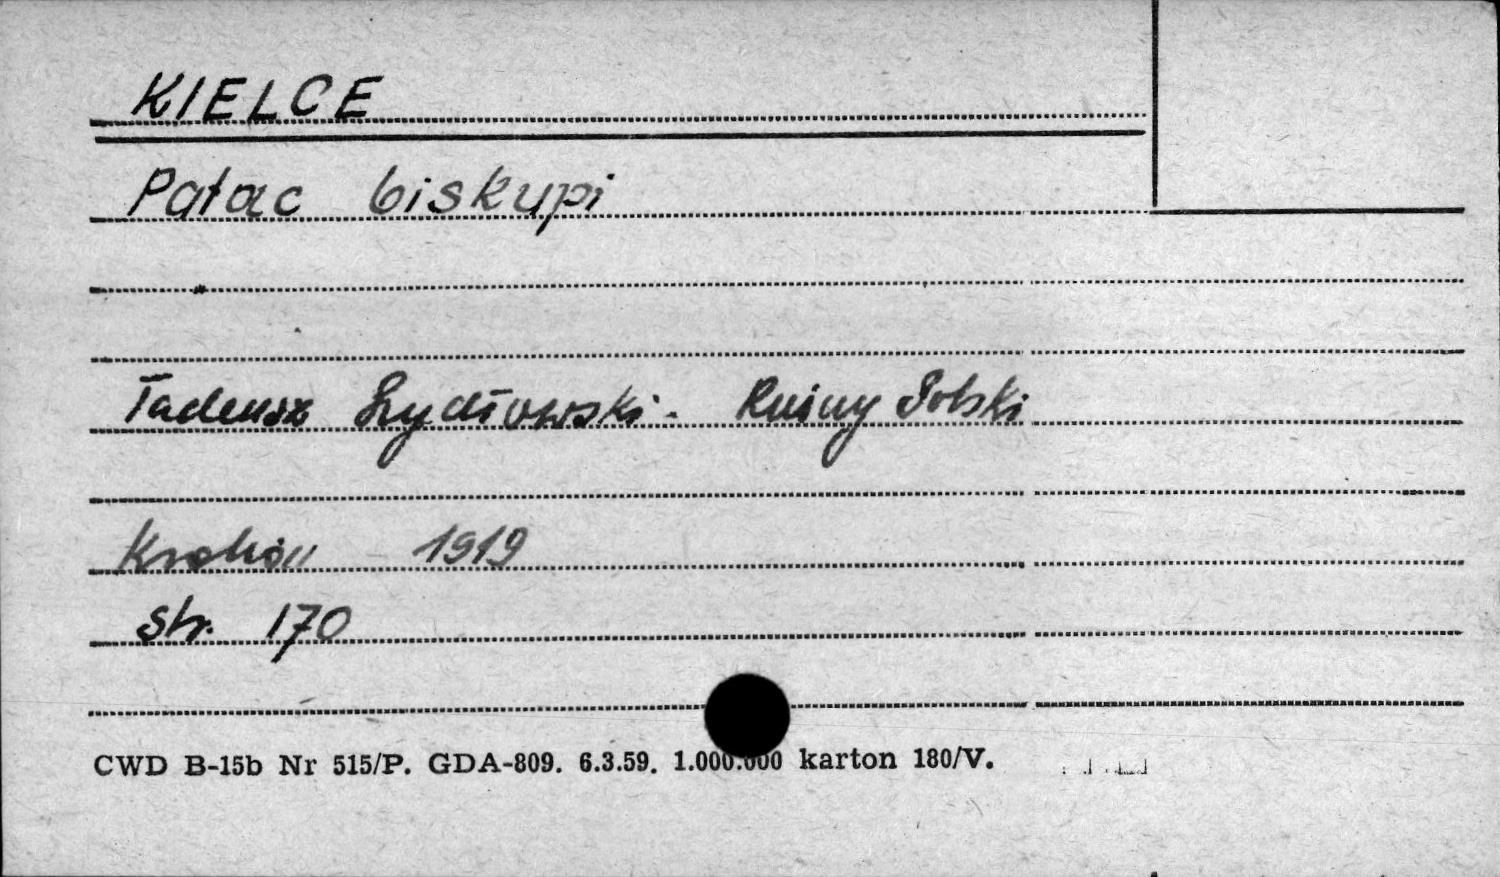 KIELCE
Pałac biskupi
Tadeusz Szydłowski. Ruiny Polski
Kraków 1919
str. 170
CWD B-15b Nr 515/P. GDA-809. 6.3.59. 1.000.000 karton 180/V.